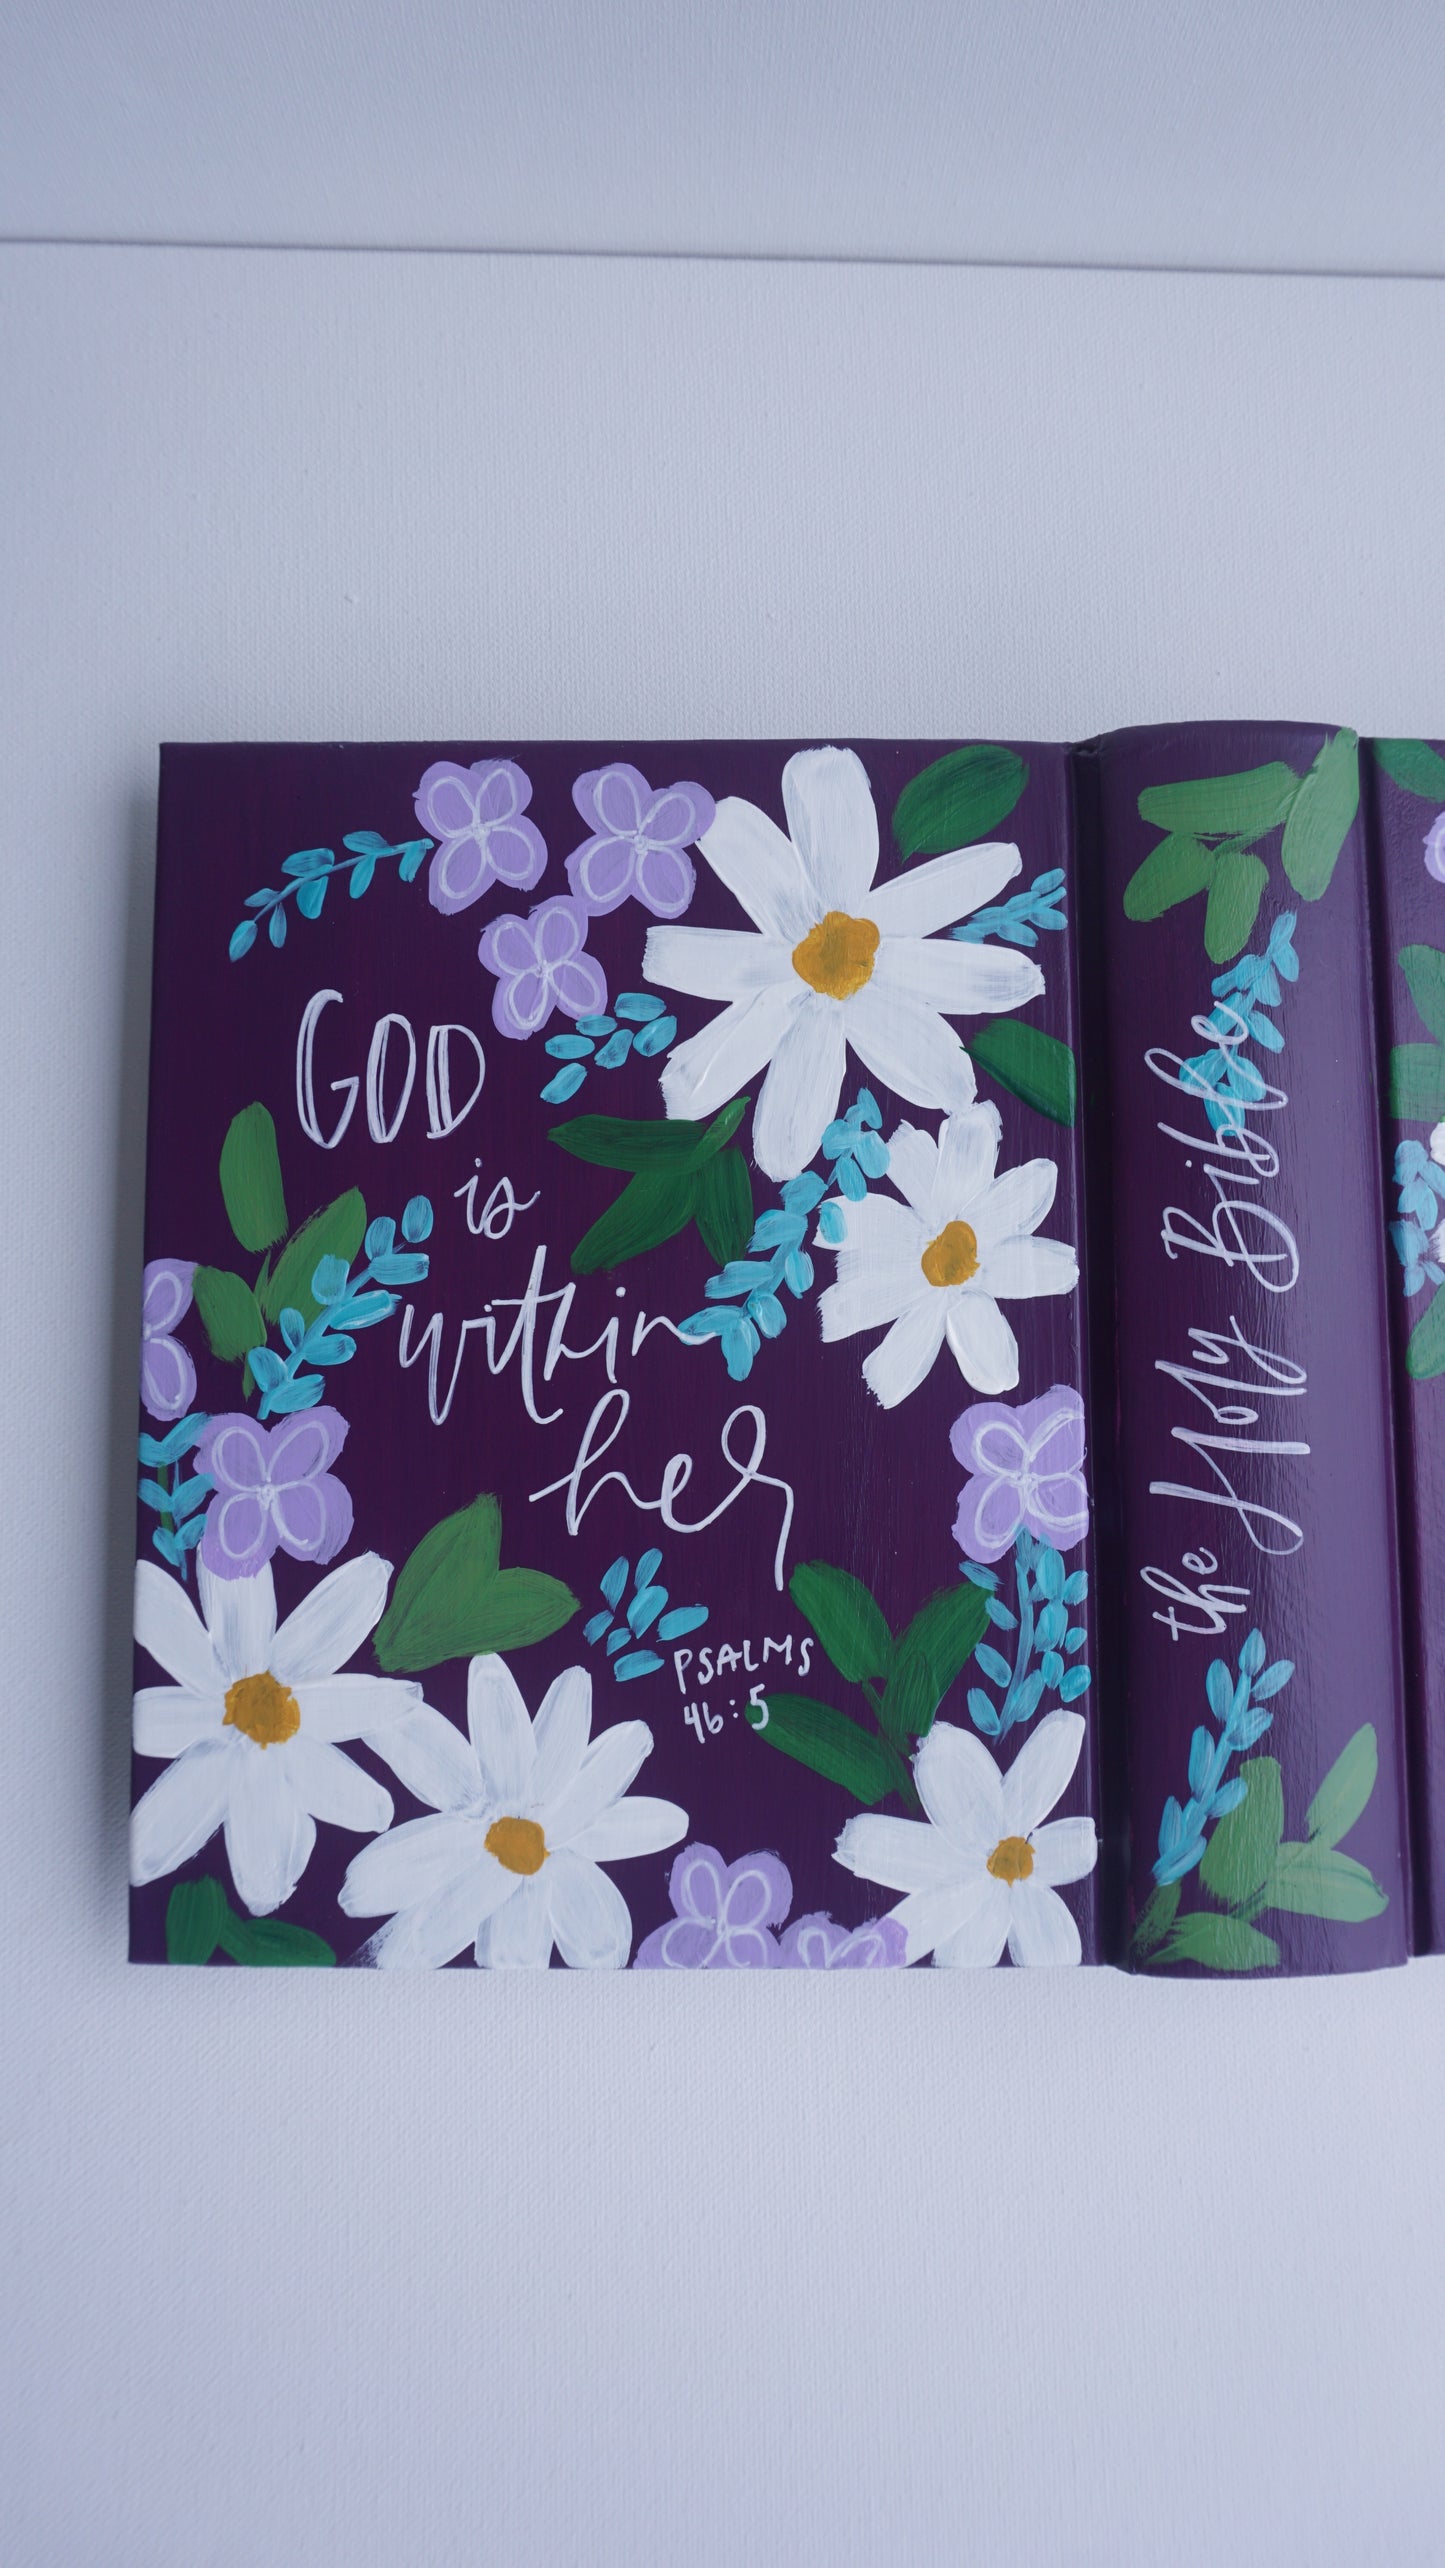 GOD
is
within
her
PSALMS
46:5
the Holy Bible